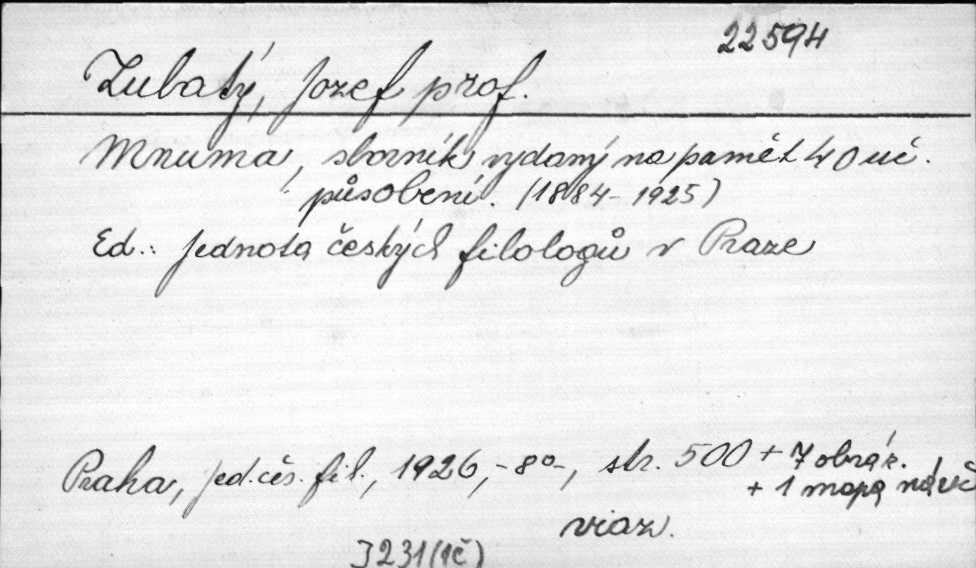 22594
Zubatý, Jozef prof.
Mnuma, sborník vydaný na pamět 40 uč.
působení. (1884-1925)
Ed.: Jednota českých filologů v Praze
Praha, Jed. čes. fil., 1926, -8°-, str. 500 + 7 obráz.
+ 1 mapa
viaz.
J 231 (1č)